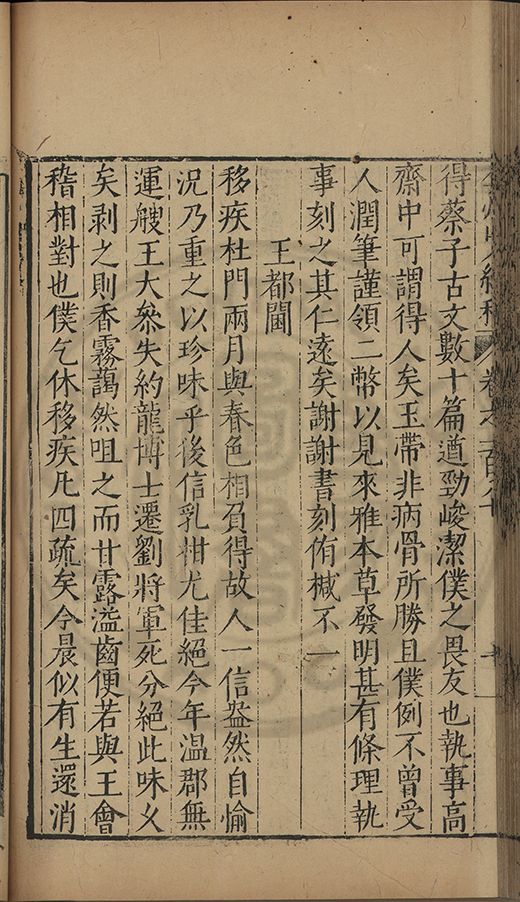 得蔡子古文數十篇遒勁峻潔僕之畏友也執事高
齋中可謂得人矣玉帶非病骨所勝且僕例不曾受
人潤筆謹領二幣以見來雅本草發明甚有條理執
事刻之其仁遠矣謝謝書刻侑椷不一
王都閫
移疾杜門兩月與春色相負得故人一信盎然自愉
況乃重之以珍味乎後信乳柑尤佳絕今年温郡無
運艘王大叅失約龍博士遷劉將軍死分絕此味乂
矣剥之則香霧藹然咀之而甘露溢齒便若與王會
稽相對也僕乞休移疾凡四疏矣今晨似有生還消